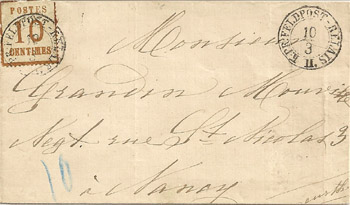 POSTES
10
CENTIMES
K.PR.FELDPOST-RELAIS
10
3
II.
Monsieur
Grandin
Negt. rue St Nicolas 3
10
à Nancy